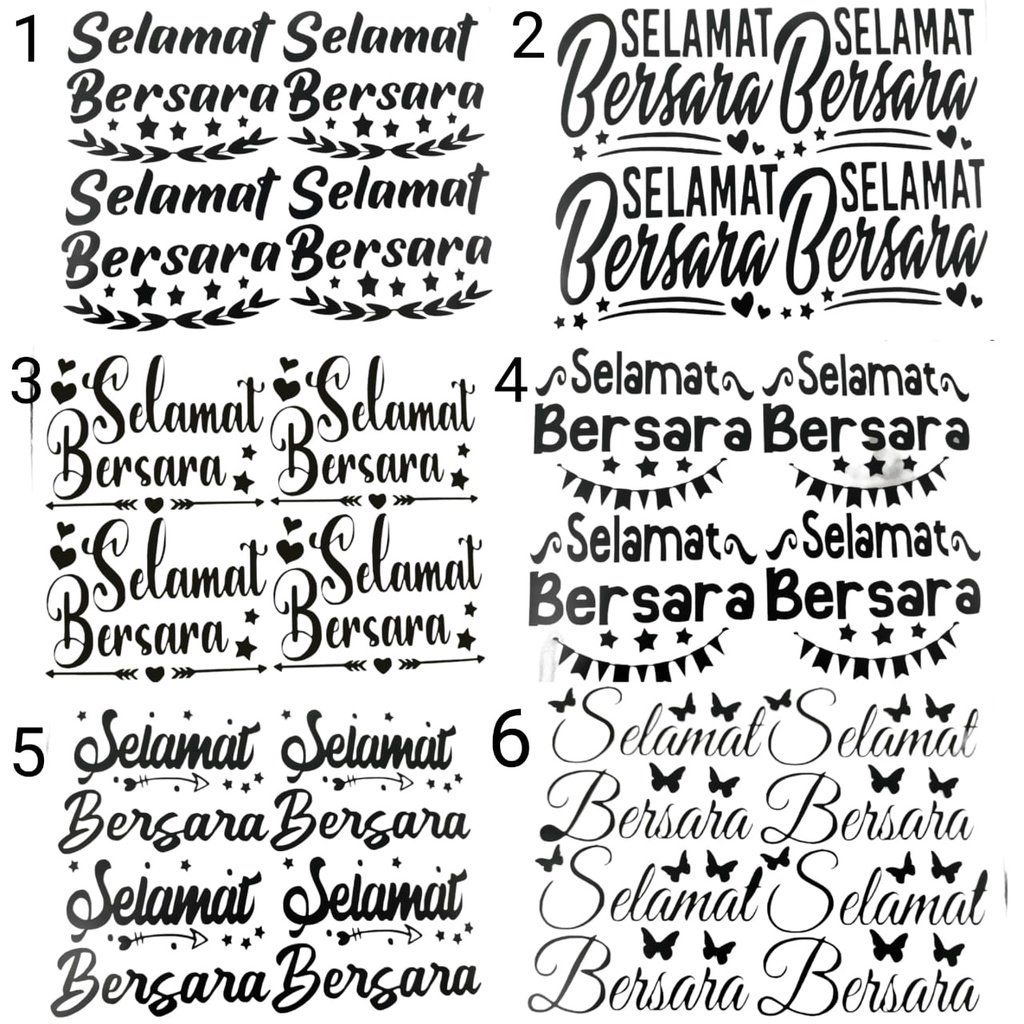 1
Selamat Selamat
Bersara Bersara
Selamat Selamat
Bersara Bersara
2
SELAMAT SELAMAT
Bersara Bersara
SELAMAT SELAMAT
Bersara Bersara
3
Selamat Selamat
Bersara Bersara
Selamat Selamat
Bersara Bersara
4
Selamat Selamat
Bersara Bersara
Selamat Selamat
Bersara Bersara
5
Selamat Selamat
Bersara Bersara
Selamat Selamat
Bersara Bersara
6
Selamat Selamat
Bersara Bersara
Selamat Selamat
Bersara Bersara